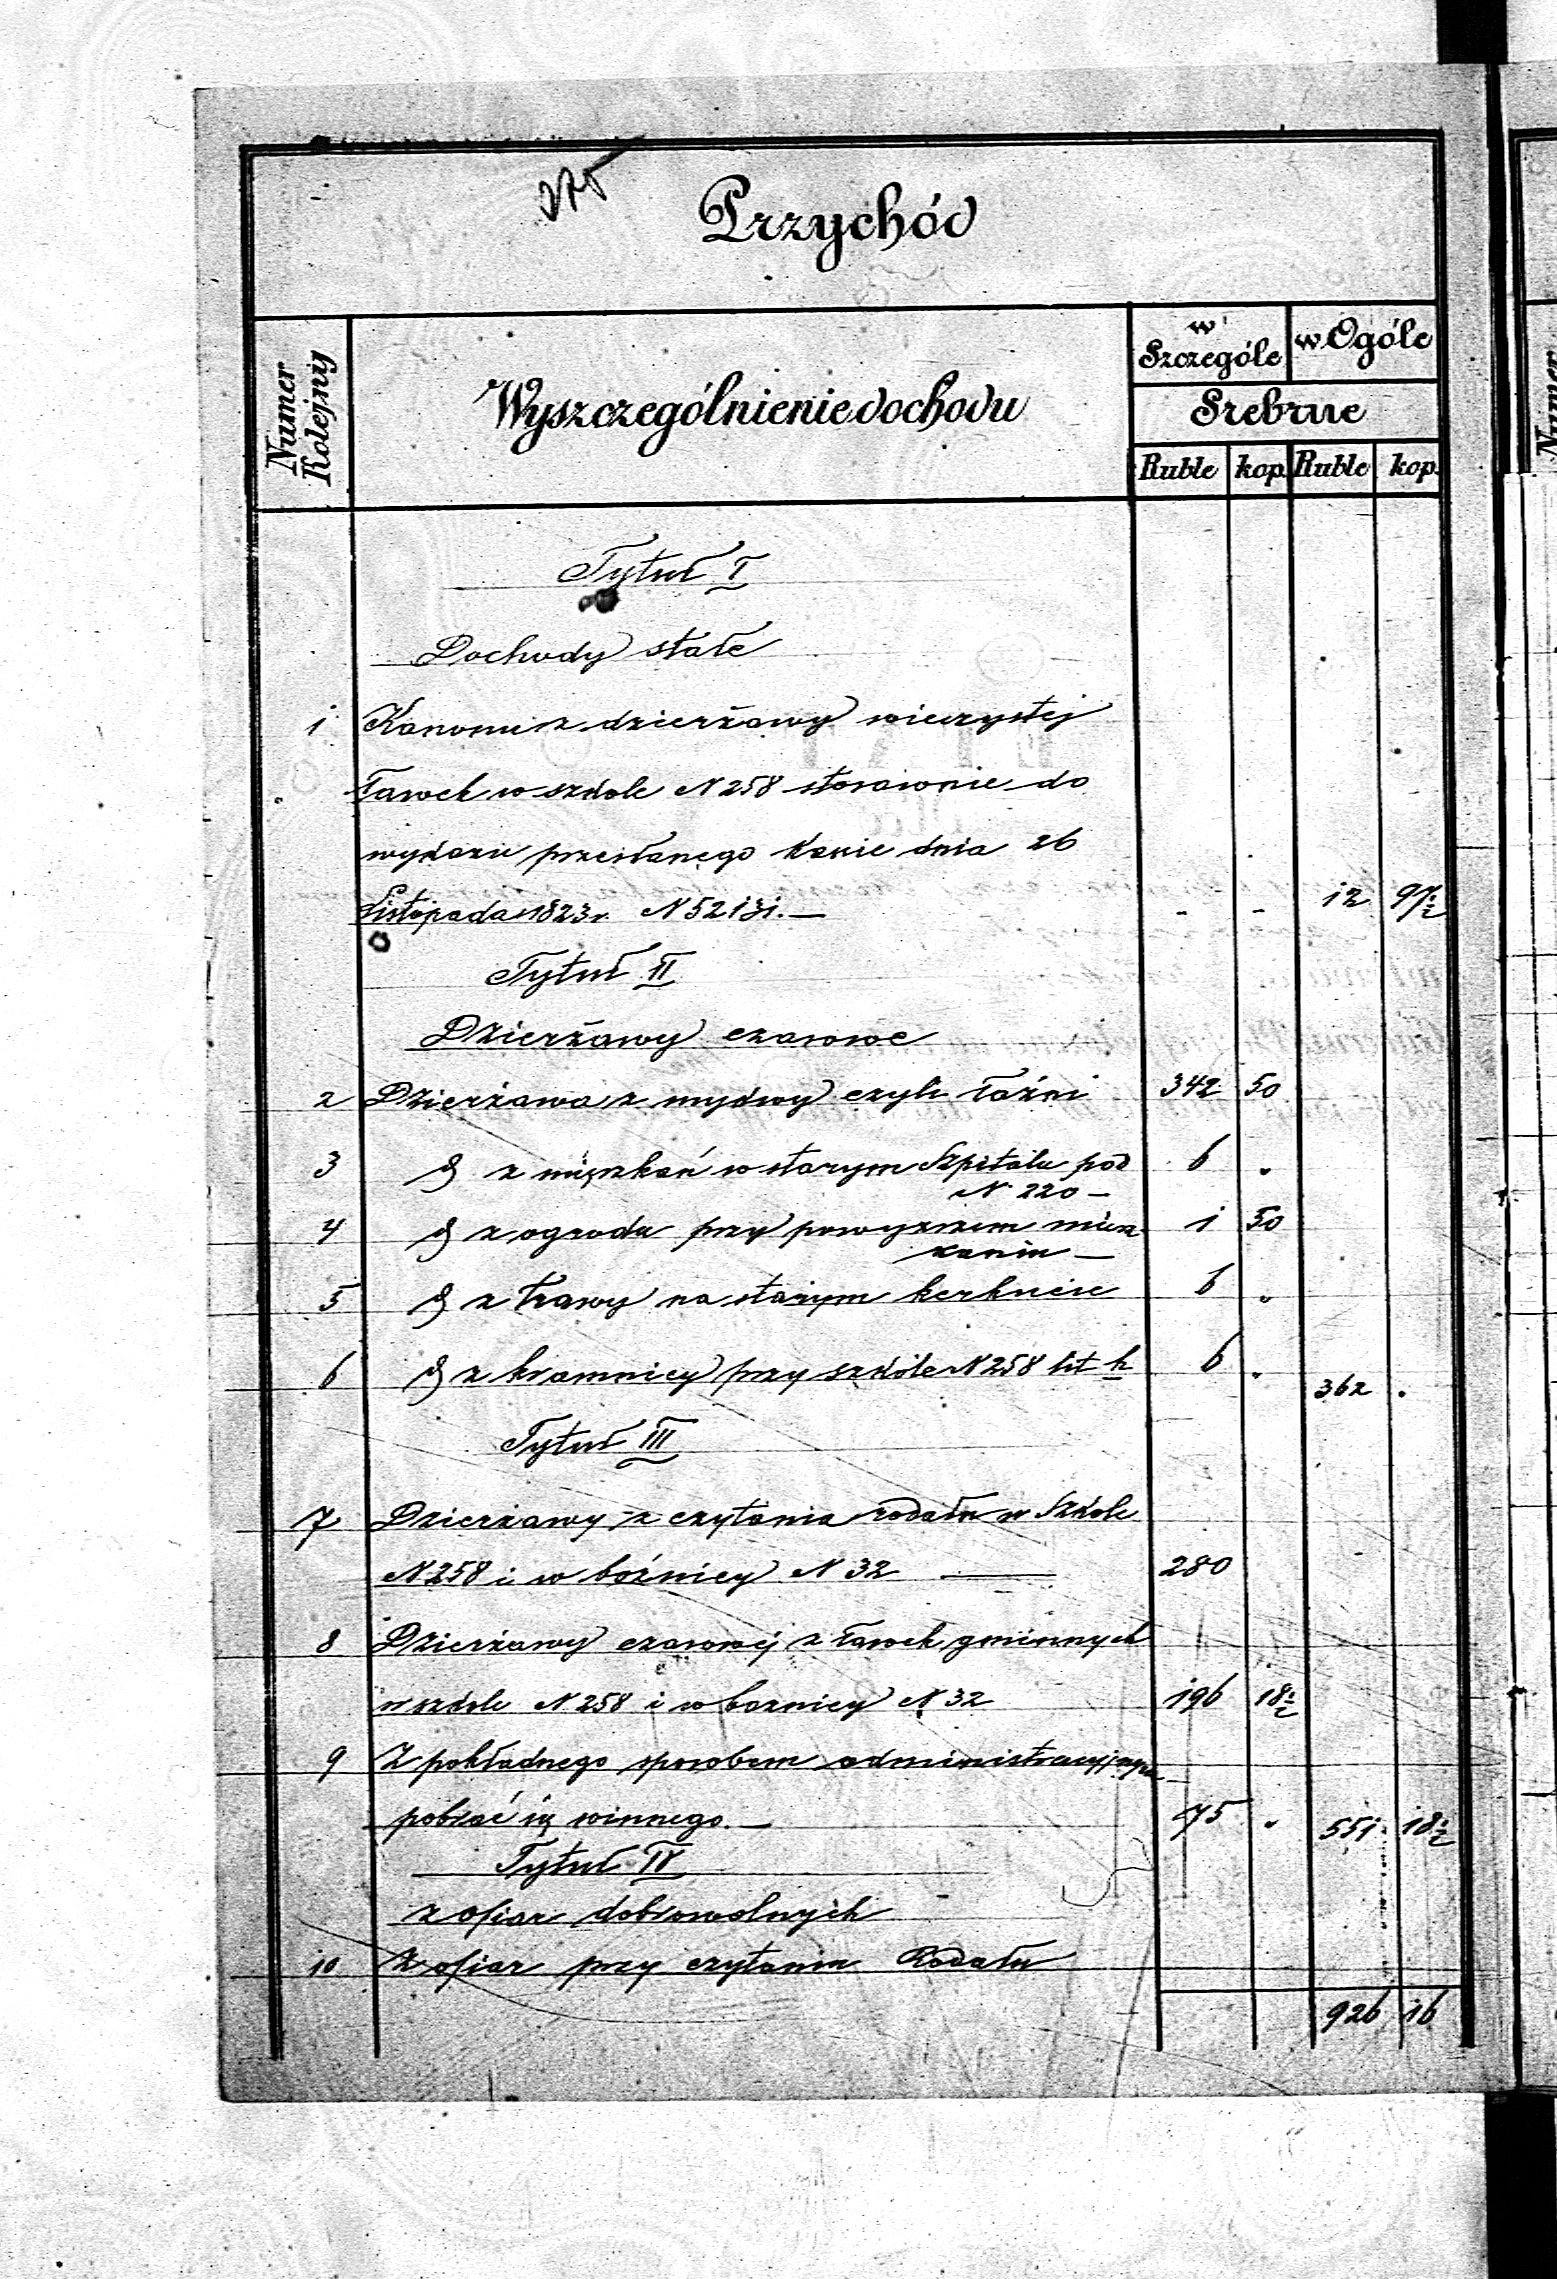 375
Przychód
Numer Kolejny
Wyszczególnienie dochodu
w Szczególe
w Ogóle
Srebrne
Ruble kop. Ruble kop.
Tytuł I
Dochody stałe
1 Kanonu z dzierżawy wieczystej
Ławek w szkole N 258 stosownie do
wykazu przesłanego Kassie dnia 26
Listopada 1823 r. N 52131. — - - 12 97½
Tytuł II
Dzierżawy czasowe
2 Dzierżawa z mykwy czyli łaźni 342 50
3 d z mięszkań w starym Szpitalu pod 6 "
N 220 —
4 d z ogrodu przy powyzszem miesz 1 50
kaniu —
5 d z trawy na starym kerkucie 6 "
6 d z kramnicy przy szkole N 258 lit h 6 " 362 "
Tytuł III
7 Dzierżawy z czytania rodału w Szkole
N 258 i w bóźnicy N 32 — 280
8 Dzierżawy czasowej z ławek gminnych
w szkole N 258 i w boznicy N 32 196 18½
9 Z pokładnego sposobem administracyjnym
pobrać się winnego. — 75 " 551 18½
Tytuł IV
z ofiar dobrowolnych
10 Z ofiar przy czytaniu Rodału
926 16